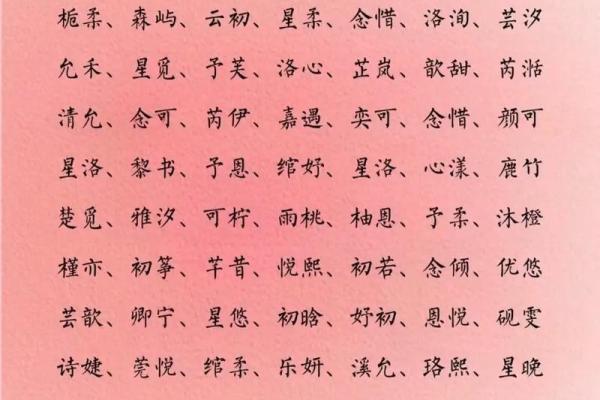 栀柔、森屿、云初、星柔、念惜、洛洵、芸汐
允禾、星觅、予芙、洛心、芷岚、歆甜、芮湉
清允、念可、芮伊、嘉遇、奕可、念惜、颜可
星洛、黎书、予恩、绾妤、星洛、心漾、鹿竹
楚觅、雅汐、可柠、雨桃、柚恩、予柔、沐橙
槿亦、初筝、芊昔、悦熙、初若、念倾、优悠
芸歆、卿宁、星悠、初晗、妤初、恩悦、砚雯
诗婕、莞悦、绾柔、乐妍、溪允、珞熙、星晚